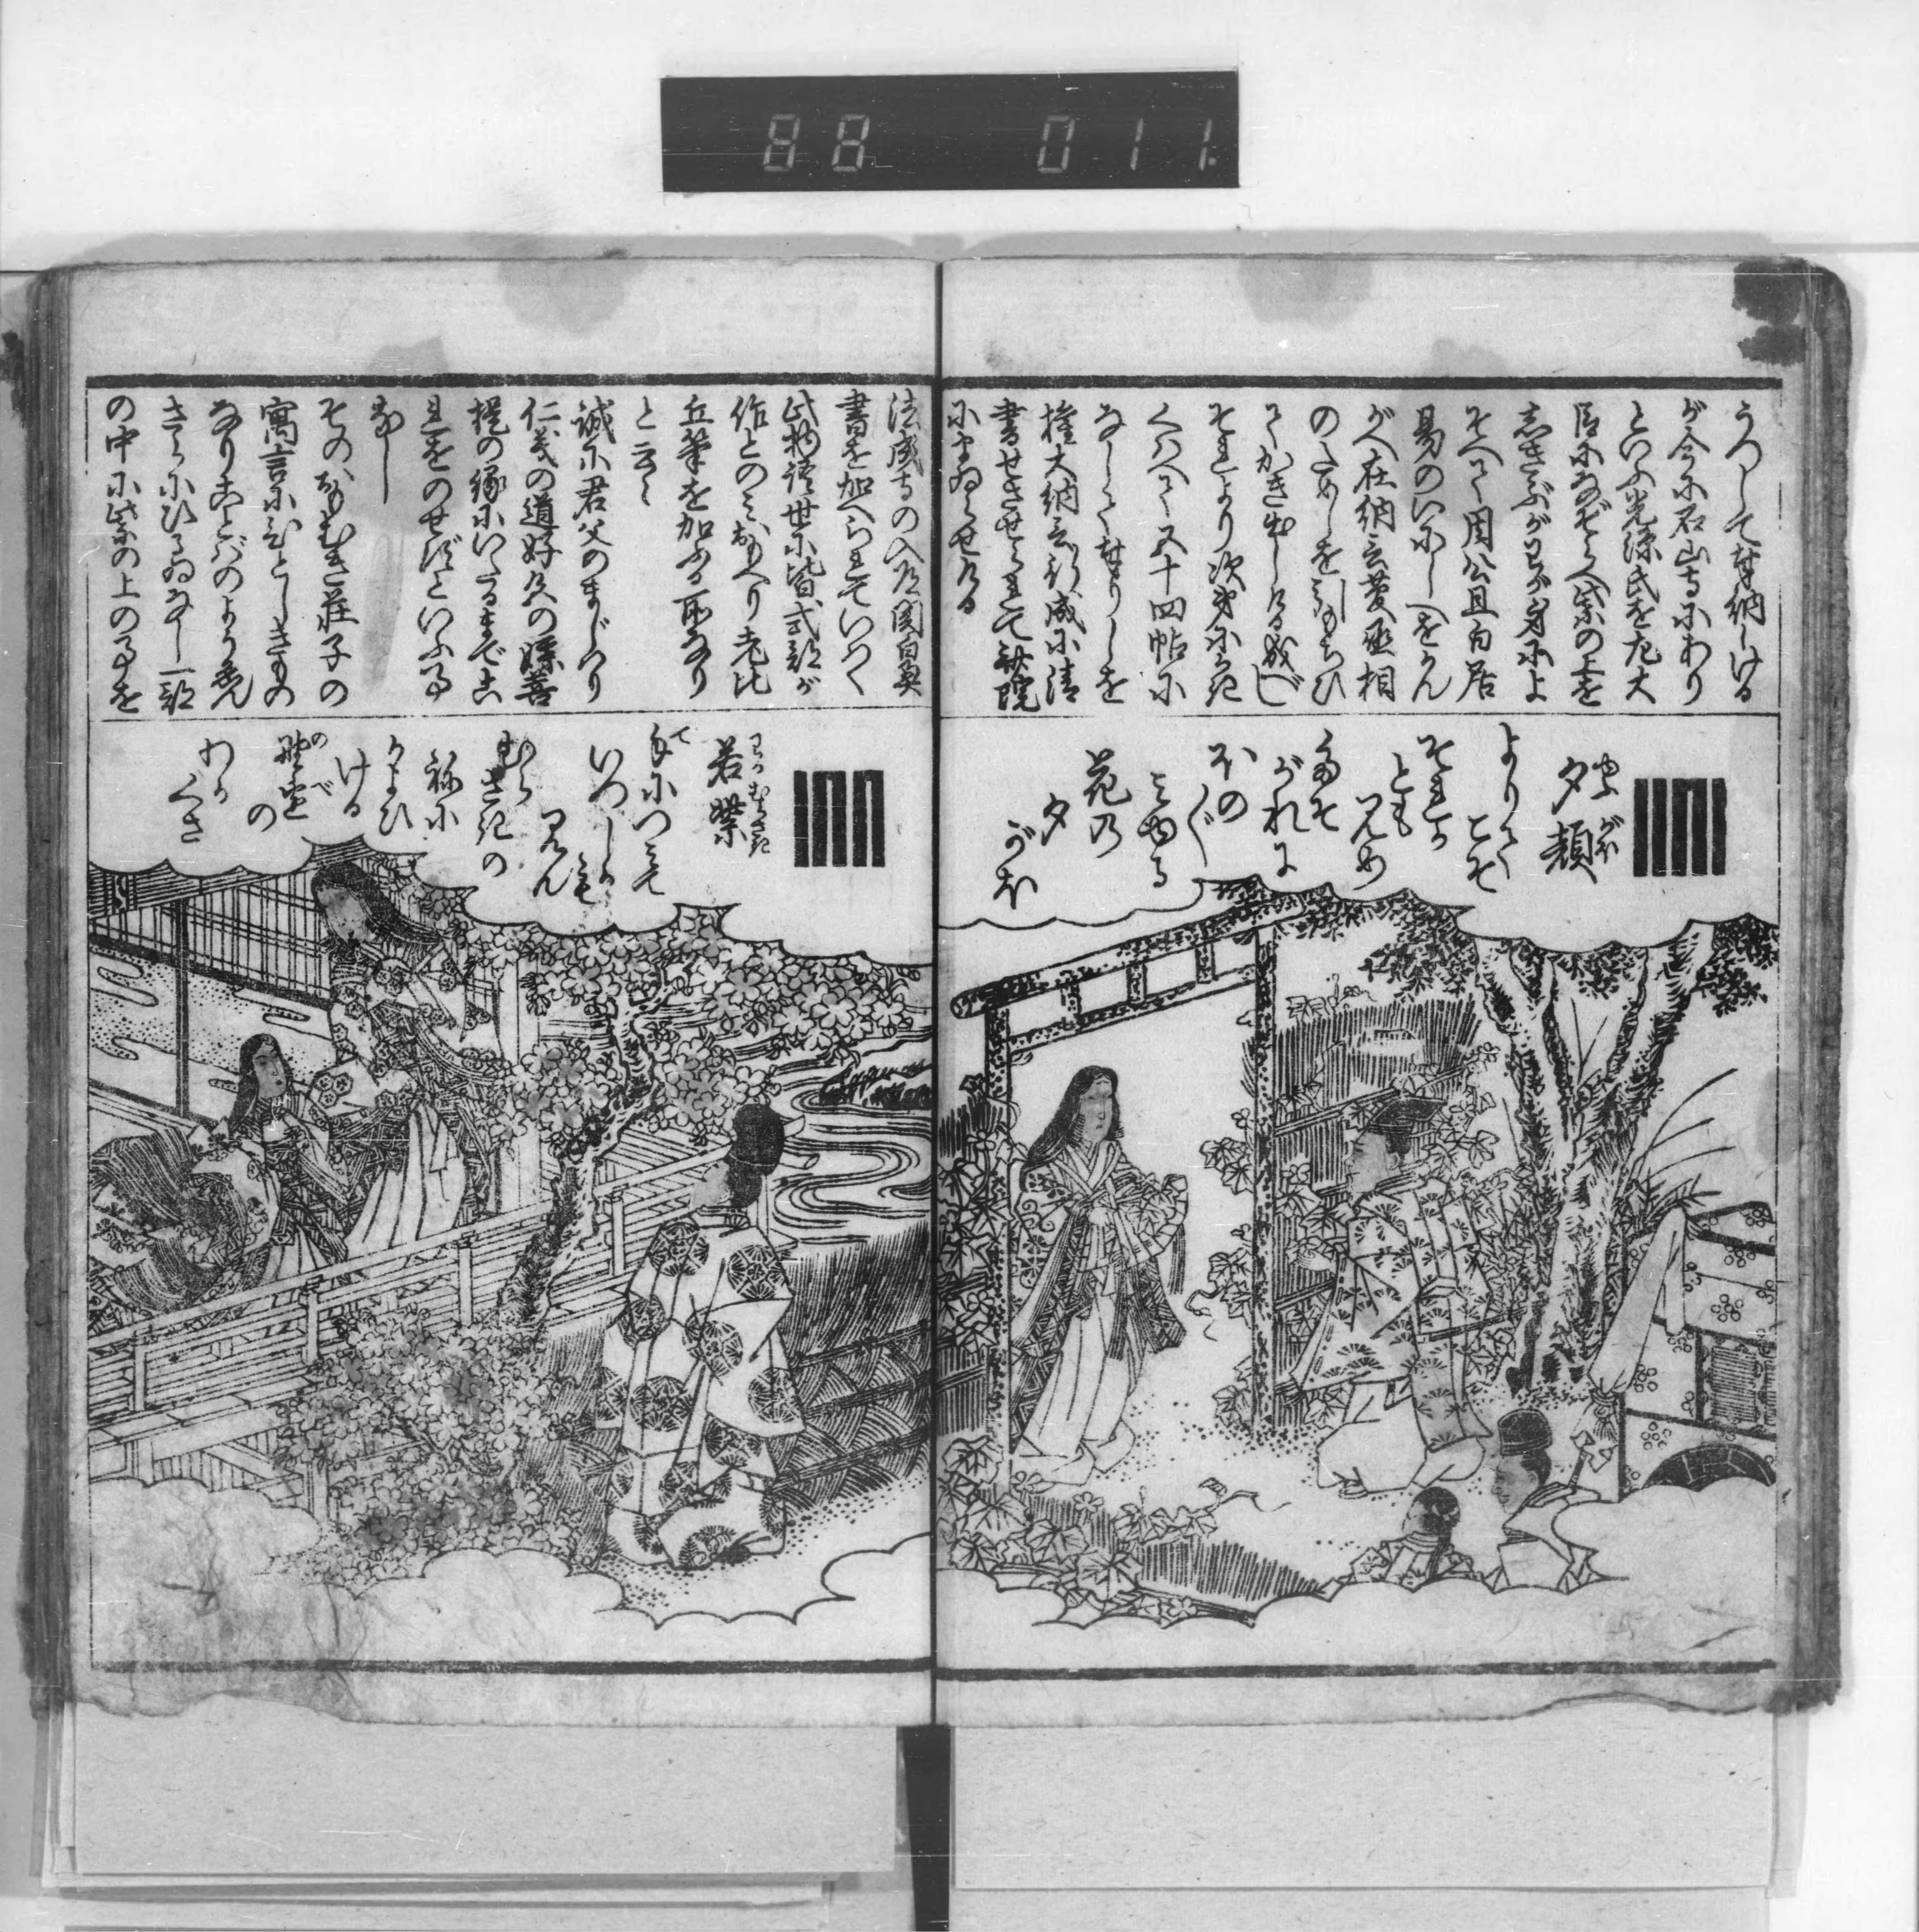 88 011.
うつして奉納しける
が今に石山寺にわり
といふ光源氏を左大
臣になぞらへ紫の上を
しきぶが身によ
そへて周公旦白居
易のいにしへをかん
がへ在納言菅丞相
のためしを引もちひ
てかき出しける成べし
それより次第にかき
くはへて又十四帖に
なしてけりしを
権大納言行成に清
書せさせられて斎院
にまゐらせける
夕顔
よりて
こそ
それか
とも
見め
たそ
がれに
ほの
ぐ
みゆる
花の
夕
がほ
法成寺の入道関白奥
書を加へられていはく
此物語世に皆式部が
作とのみおもへり老比
丘筆を加ふる所なり
と云々
誠に君父のまじはり
仁義の道好色の媒菩
提の縁にいたるまでこ
れをのせずといふ事
なし
そのおもむき荘子の
寓言にひとしきもの
なりことばのよう艶
さらにひるゐなし一部
の中に紫の上の事を
若紫
わかむらさき
手につみて
いつしかも
見ん
むらさきの
ねに
かよひ
ける
野辺の
わか
くさ